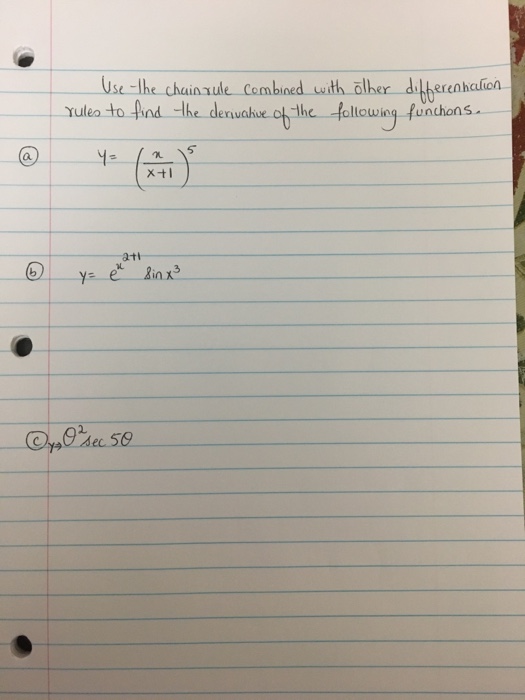 Use the chain rule combined with other differentiation
rules to find the derivative of the following functions.
(a) y= (x/(x+1))^5
(b) y= e^(x^2+1) sin x^3
(c) y= θ^2 sec 5θ